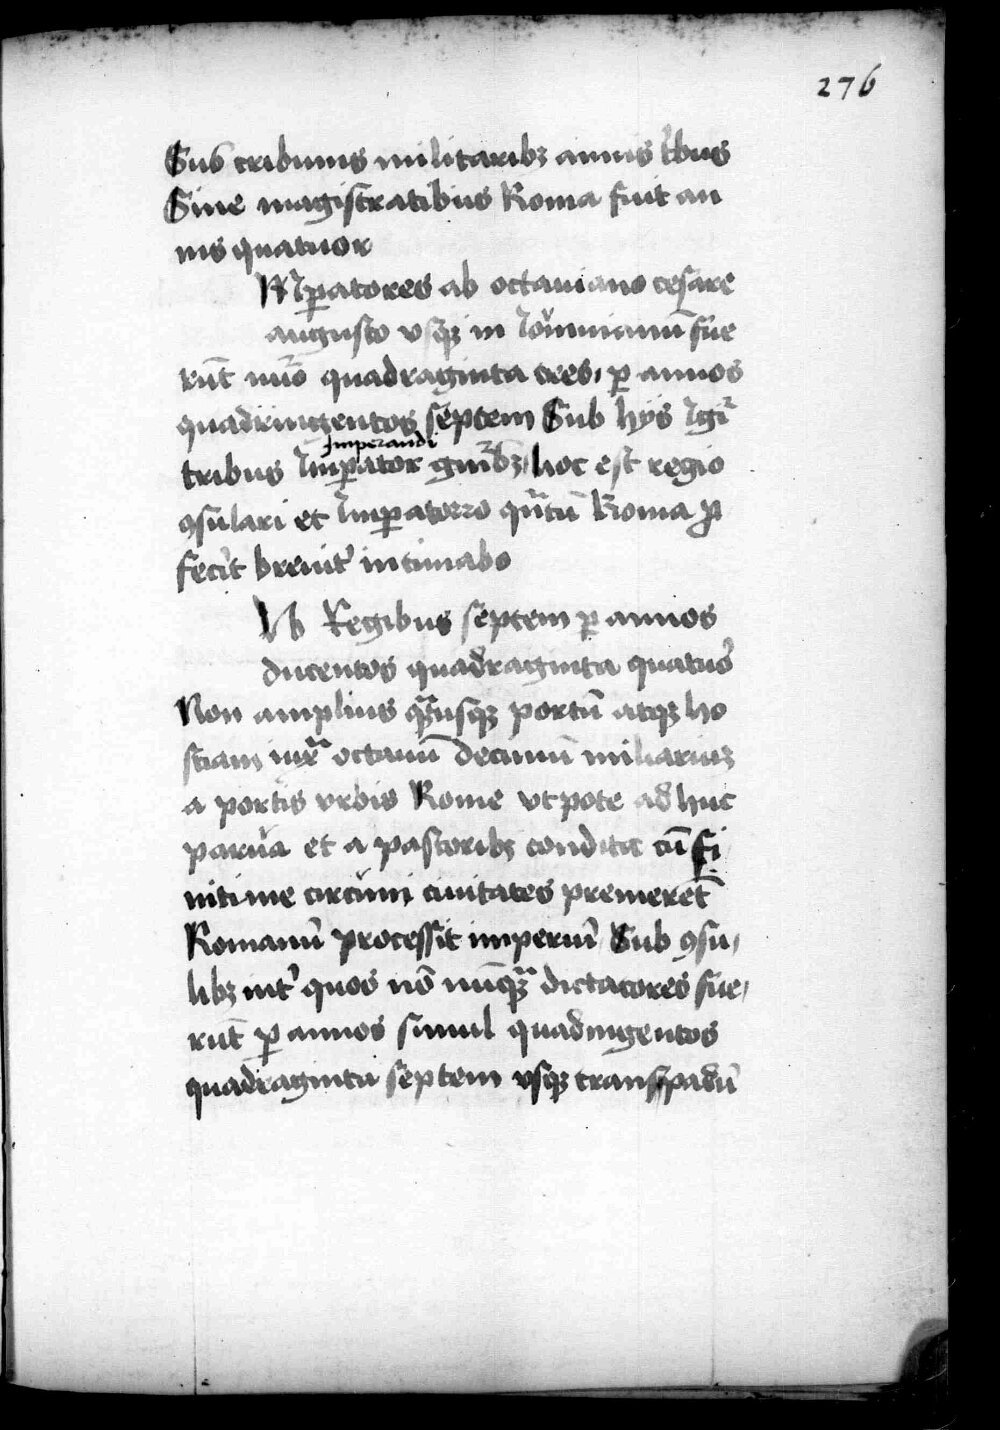 276
Sub tribunis militaribꝫ annis tͥbus
Sine magistratibus Roma fuit an
nis quatuor
Mꝑatores ab octauiano cesare
augusto vsqꝫ in Iouinianū fue
rūt nūo quadraginta tres, ꝑ annos
quadringentos septem Sub hijs Igr̄
Imperandi
tribus Imꝑator gn̄ibꝫ, hoc est regio
ꝯsulari et Imꝑatorio qn̄tū Roma ꝓ
fecit breuit᷑ intimabo
Vb Regibus septem ꝑ annos
ducentos quadraginta quatuor
Non amplius qͣusqꝫ portū atqꝫ ho
stiam infͣ octauū decimū miliariuꝫ
a portis vrbis Rome vtpote adhuc
parua et a pastoribꝫ condita cū fi
nitime circum ciuitates premeret᷑
Romanū processit imperiū, Sub ꝯsu,
libꝫ int᷑ quos nō nūqͣ dictatores fue,
rūt ꝑ annos simul quadringentos
quadraginta septem vsqꝫ transpadū